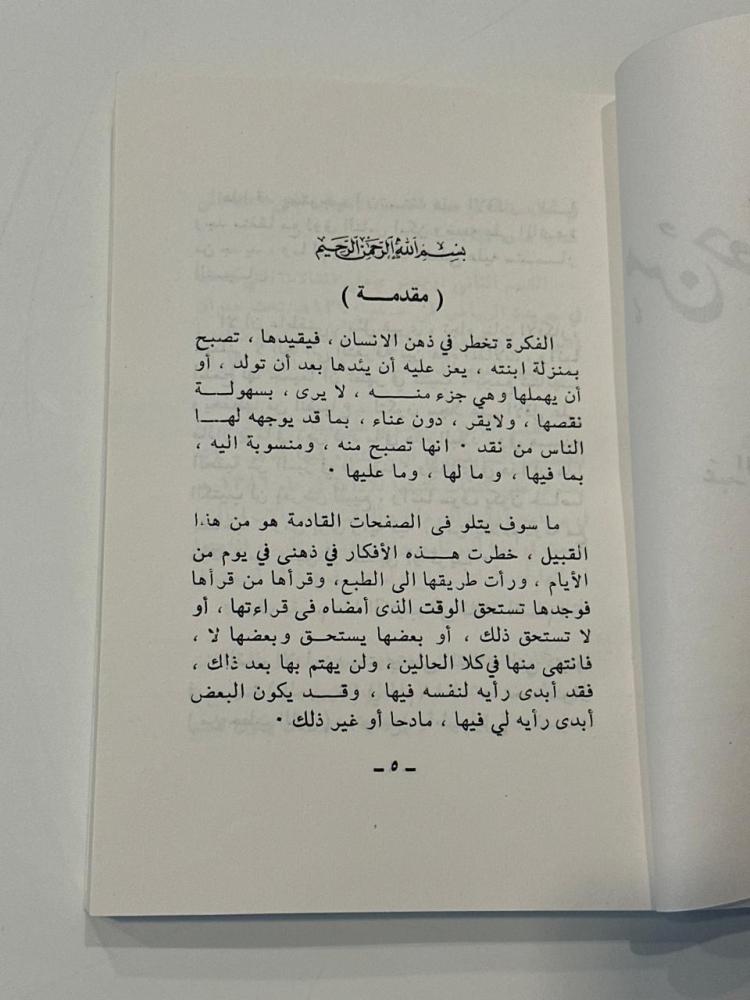 بسم الله الرحمن الرحيم
( مقدمــــة )
الفكرة تخطر في ذهن الانسان ، فيقيدها ، تصبح
بمنزلة ابنته ، يعز عليه أن يئدها بعد أن تولد ، أو
أن يهملها وهي جزء منــــه ، لا يرى ، بسهولــــة
نقصها ، ولايقر ، دون عناء ، بما قد يوجهه لهــــا
الناس من نقد ٠ انها تصبح منه ، ومنسوبة اليه ،
بما فيها ، و ما لها ، وما عليها ٠
ما سوف يتلو فى الصفحات القادمة هو من هذا
القبيل ، خطرت هــــذه الأفكار في ذهنى في يوم من
الأيام ، ورأت طريقها الى الطبع، وقرأها من قرأها
فوجدها تستحق الوقت الذى أمضاه فى قراءتها ، أو
لا تستحق ذلك ، أو بعضها يستحــق وبعضها لا ،
فانتهى منها في كلا الحالين ، ولن يهتم بها بعد ذاك ،
فقد أبدى رأيه لنفسه فيها ، وقــــد يكون البعض
أبدى رأيه لي فيها ، مادحا أو غير ذلك ٠
ــ ٥ ــ